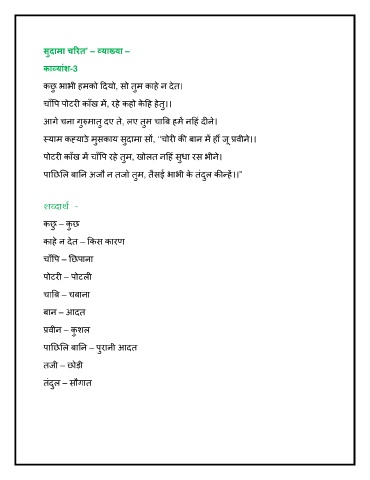 सुदामा चरित' – व्याख्या –
काव्यांश-3
कछु भाभी हमको दियो, सो तुम काहे न देत।
चाँपि पोटरी काँख में, रहे कहो केहि हेतु।।
आगे चना गुरुमातु दए ते, लए तुम चाबि हमें नहिं दीने।
स्याम कह्याउे मुसकाय सुदामा सों, "चोरी की बान में हौं जू प्रवीने।।
पोटरी काँख में चाँपि रहे तुम, खोलत नहिं सुधा रस भीने।
पाछिलि बानि अजौ न तजो तुम, तैसई भाभी के तंदुल कीन्हें।।"
शब्दार्थ -
कछु – कुछ
काहे न देत – किस कारण
चाँपि – छिपाना
पोटरी – पोटली
चाबि – चबाना
बान – आदत
प्रवीन – कुशल
पाछिलि बानि – पुरानी आदत
तजी – छोड़ी
तंदुल – सौगात